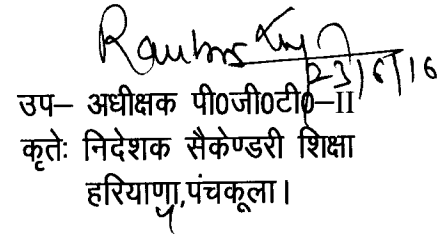 23/6/16
उप– अधीक्षक पी0जी0टी0–II
कृतेः निदेशक सैकेण्डरी शिक्षा
हरियाणा,पंचकूला।